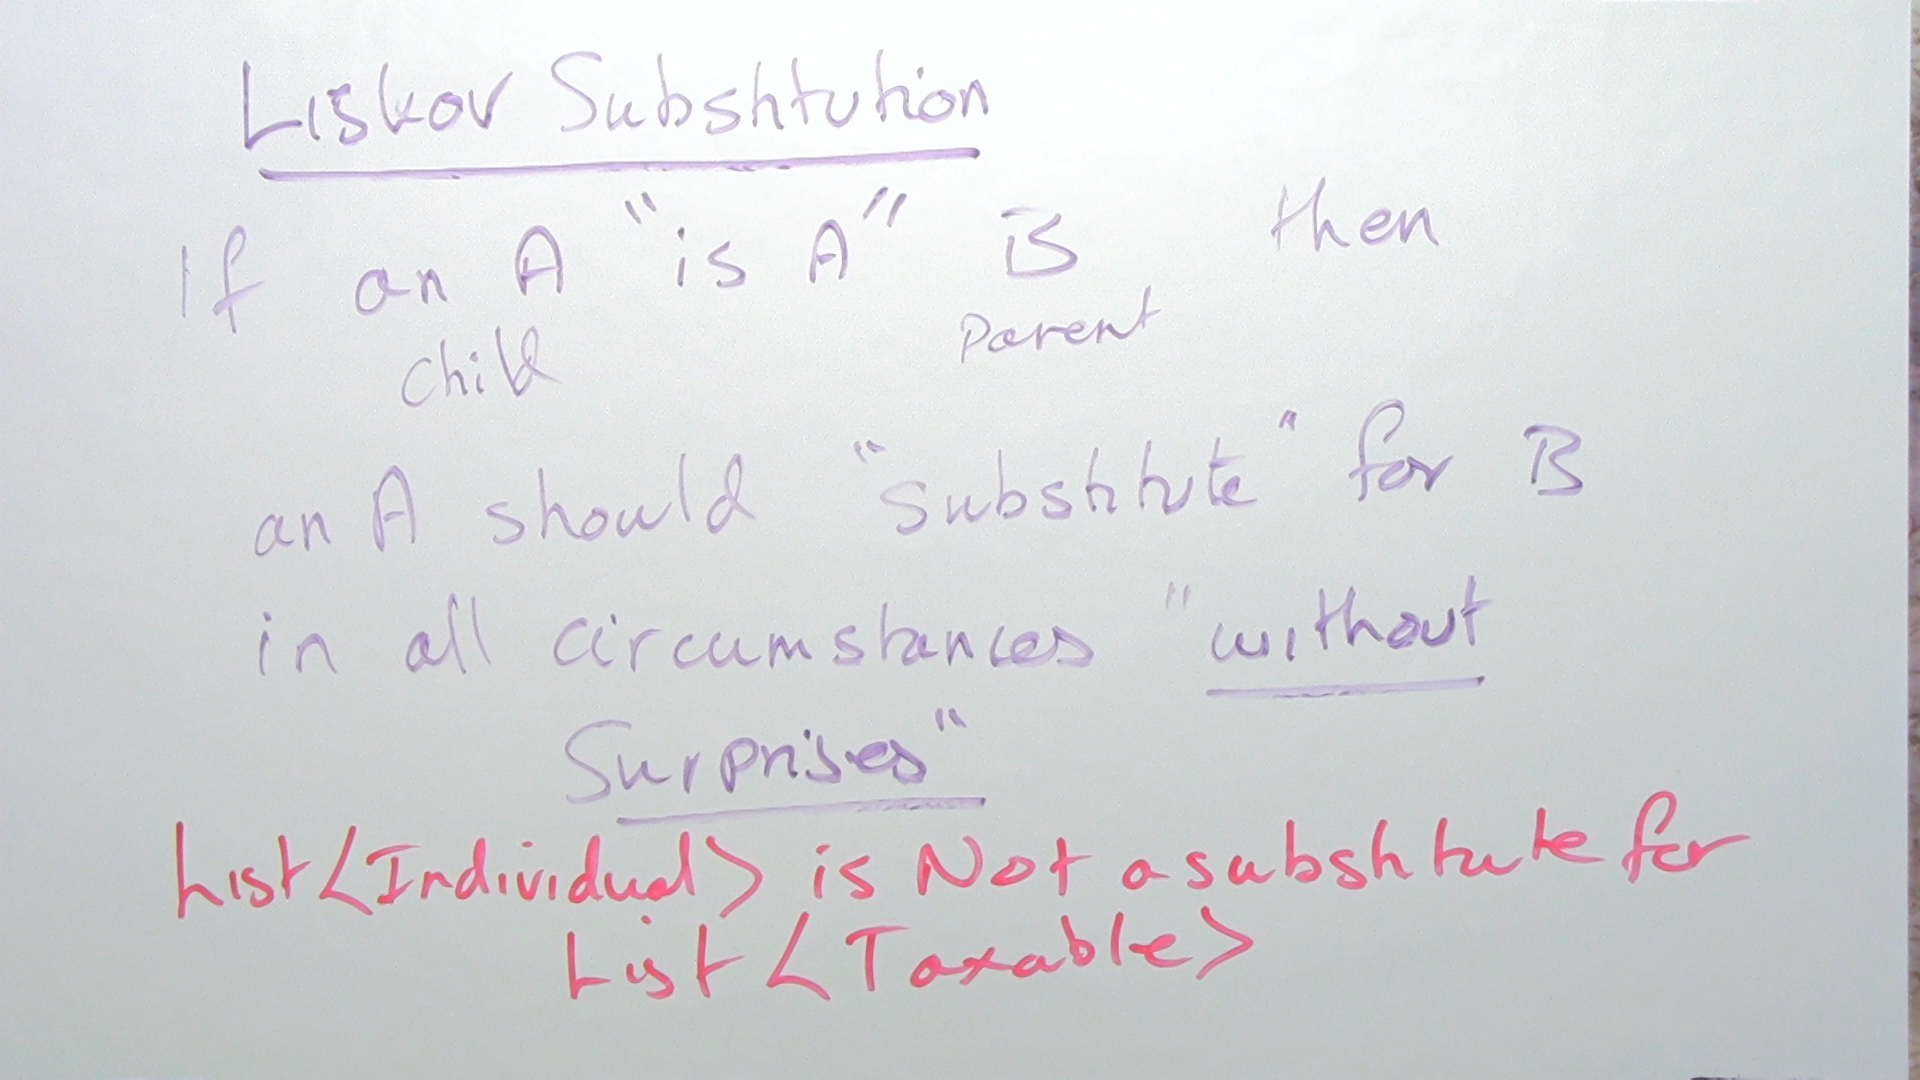 Liskov Substitution
If an A "is A" B then
Child Parent
an A should "substitute" for B
in all circumstances "without
Surprises"
List<Individual> is Not a substitute for
List<Taxable>